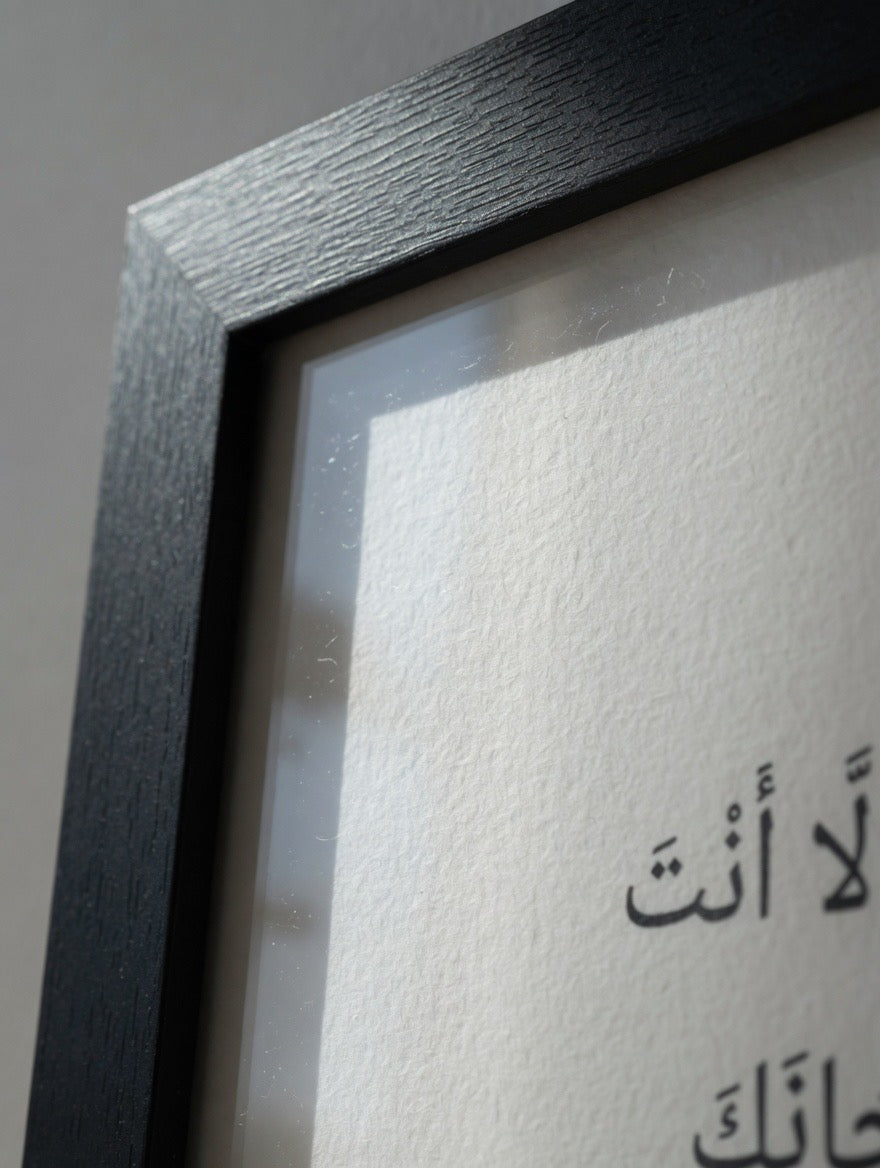 لَّا أَنْتَ
حانَكَ